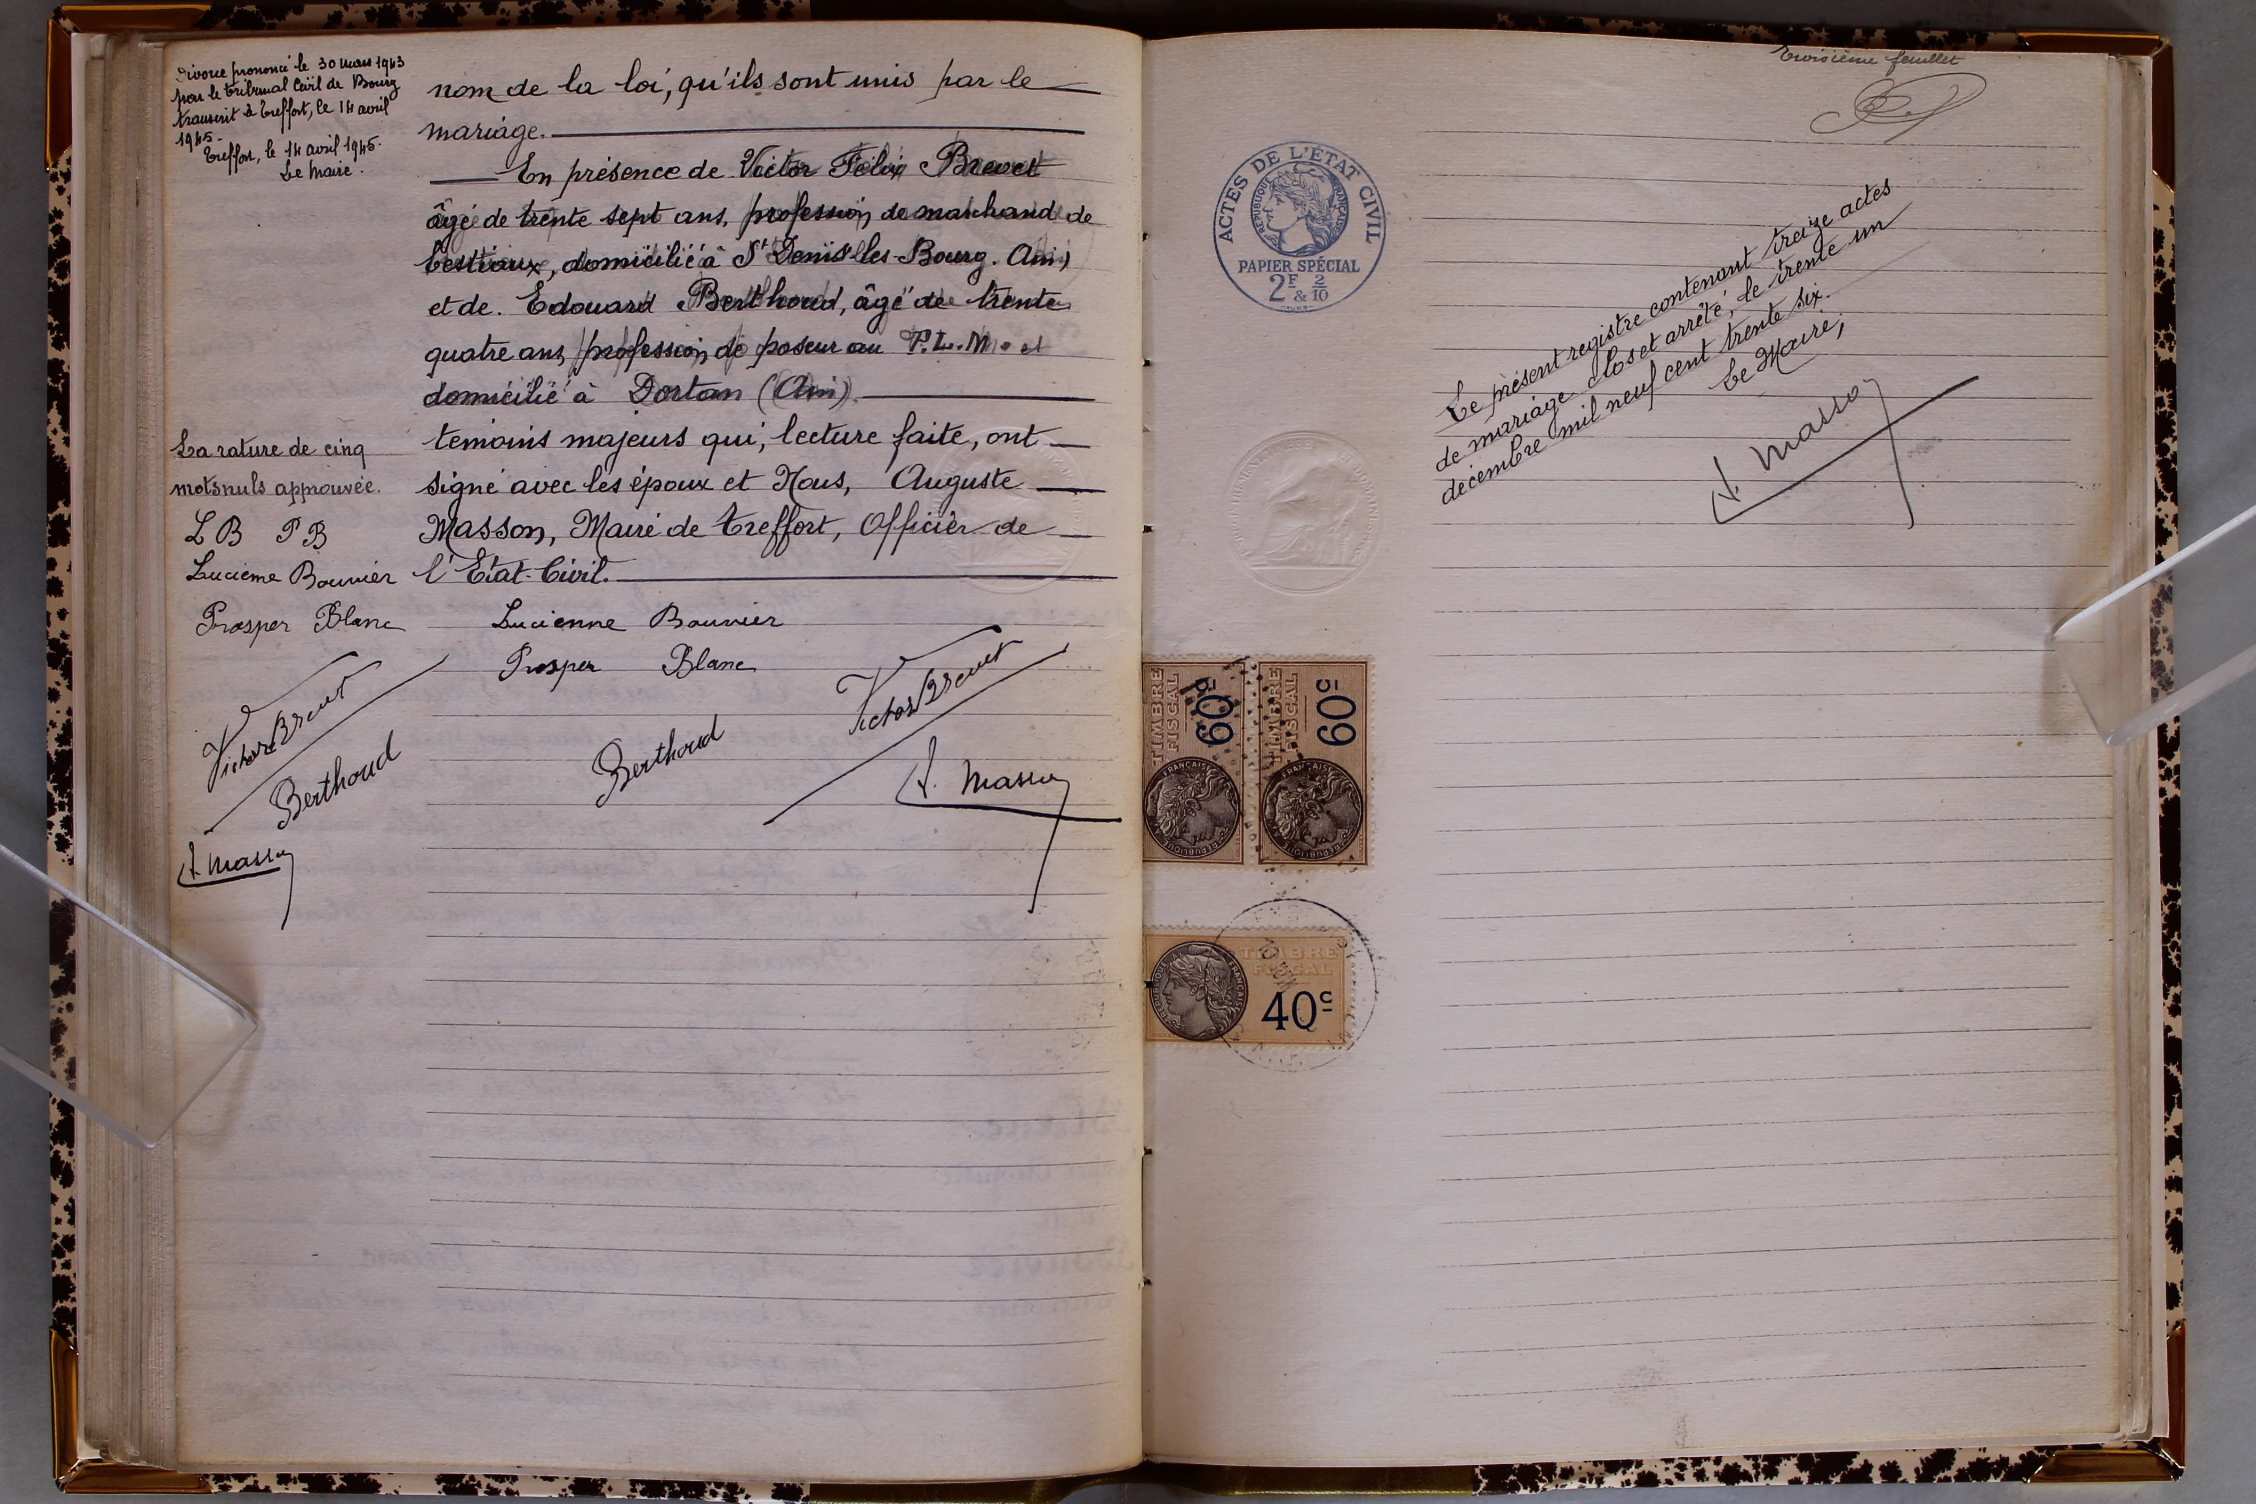 Divorce prononcé le 30 mars 1943
par le tribunal Civil de Bourg
transcrit à Treffort, le 14 avril
1945.
Treffort, le 14 avril 1945.
Le Maire.
nom de la loi, qu'ils sont unis par le
mariage.
En présence de Victor Félix Brevet
âgé de trente sept ans, profession de marchand de
bestiaux, domicilié à St Denis les-Bourg. Ain)
et de. Edouard Berthoud, âgé de trente
quatre ans, profession de poseur au P.L.M. et
domicilié à Dortan (Ain).
temoins majeurs qui, lecture faite, ont
signé avec les époux et Nous, Auguste
Masson, Maire de Treffort, Officier de
l'Etat-Civil.
La rature de cinq
mots nuls approuvée.
L B P B
Lucienne Bouvier
Prosper Blanc
Victor Brevet
Berthoud
A. Masson
Lucienne Bouvier
Prosper Blanc
Victor Brevet
Berthoud
A. Masson
Troisième feuillet
ACTES DE L'ÉTAT CIVIL
RÉPUBLIQUE FRANÇAISE
PAPIER SPÉCIAL
2F & 2/10
Le présent registre contenant treize actes
de mariage clos et arrêté, le trente un
décembre mil neuf cent trente six.
Le Maire,
A. Masson
TIMBRE
FISCAL
60c
RÉPUBLIQUE FRANÇAISE
TIMBRE
FISCAL
60c
RÉPUBLIQUE FRANÇAISE
TIMBRE
FISCAL
40c
RÉPUBLIQUE FRANÇAISE